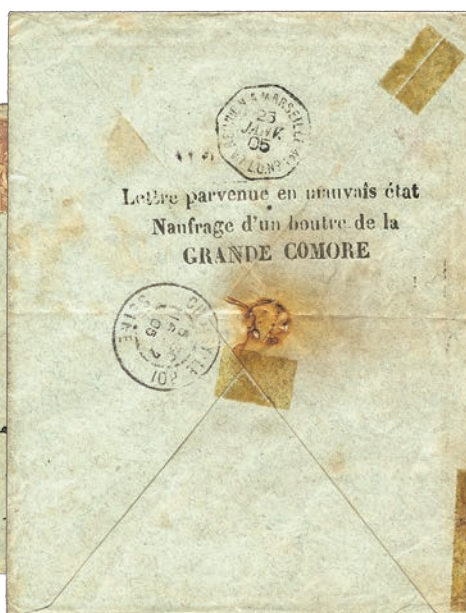 LA RÉUNION A MARSEILLE
25
JANV.
05
Lettre parvenue en mauvais état
Naufrage d'un boutre de la
GRANDE COMORE
05